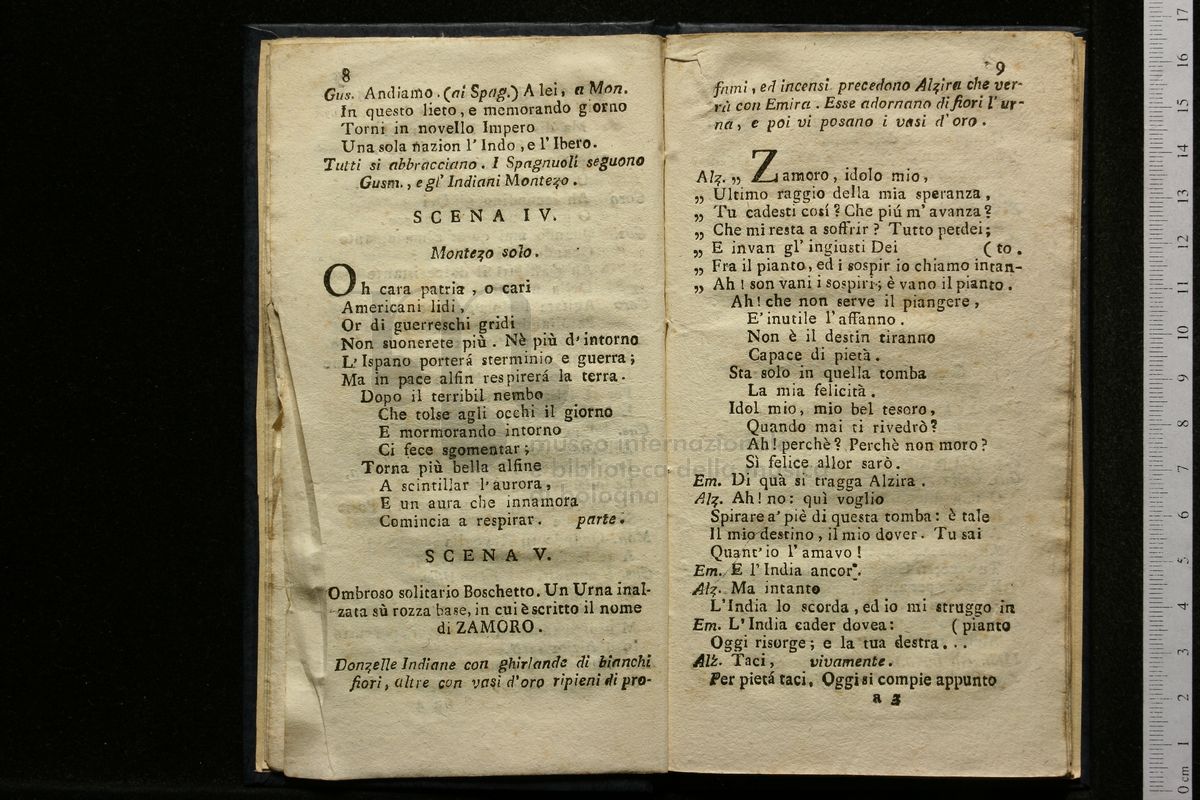 8
Gus. Andiamo. (ai Spag.) A lei, a Mon.
In questo lieto, e memorando giorno
Torni in novello Impero
Una sola nazion l'Indo, e l'Ibero.
Tutti si abbracciano. I Spagnuoli seguono
Gusm., e gl' Indiani Montezo.
SCENA IV.
Montezo solo.
Oh cara patria, o cari
Americani lidi,
Or di guerreschi gridi
Non suonerete più. Nè più d'intorno
L'Ispano porterá sterminio e guerra;
Ma in pace alfin respirerá la terra.
Dopo il terribil nembo
Che tolse agli occhi il giorno
E mormorando intorno
Ci fece sgomentar;
Torna più bella alfine
A scintillar l'aurora,
E un aura che innamora
Comincia a respirar. parte.
SCENA V.
Ombroso solitario Boschetto. Un Urna inal-
zata sù rozza base, in cui è scritto il nome
di ZAMORO.
Donzelle Indiane con ghirlande di bianchi
fiori, altre con vasi d'oro ripieni di pro-
9
fumi, ed incensi precedono Alzira che ver-
rà con Emira. Esse adornano di fiori l'ur-
na, e poi vi posano i vasi d'oro.
Alz. „ Zamoro, idolo mio,
„ Ultimo raggio della mia speranza,
„ Tu cadesti cosí? Che piú m'avanza?
„ Che mi resta a soffrir? Tutto perdei;
„ E invan gl' ingiusti Dei (to.
„ Fra il pianto, ed i sospir io chiamo intan-
„ Ah! son vani i sospiri; è vano il pianto.
Ah! che non serve il piangere,
E' inutile l'affanno.
Non è il destin tiranno
Capace di pietà.
Sta solo in quella tomba
La mia felicità.
Idol mio, mio bel tesoro,
Quando mai ti rivedrò?
Ah! perchè? Perchè non moro?
Sì felice allor sarò.
Em. Di quà si tragga Alzira.
Alz. Ah! no: quì voglio
Spirare a' piè di questa tomba: è tale
Il mio destino, il mio dover. Tu sai
Quant'io l'amavo!
Em. E l'India ancor.
Alz. Ma intanto
L'India lo scorda, ed io mi struggo in
Em. L'India cader dovea: (pianto
Oggi risorge; e la tua destra...
Alz. Taci, vivamente.
Per pietá taci. Oggi si compie appunto
a 3
museo internazionale
e biblioteca della musica
di bologna
0 cm 1 2 3 4 5 6 7 8 9 10 11 12 13 14 15 16 17